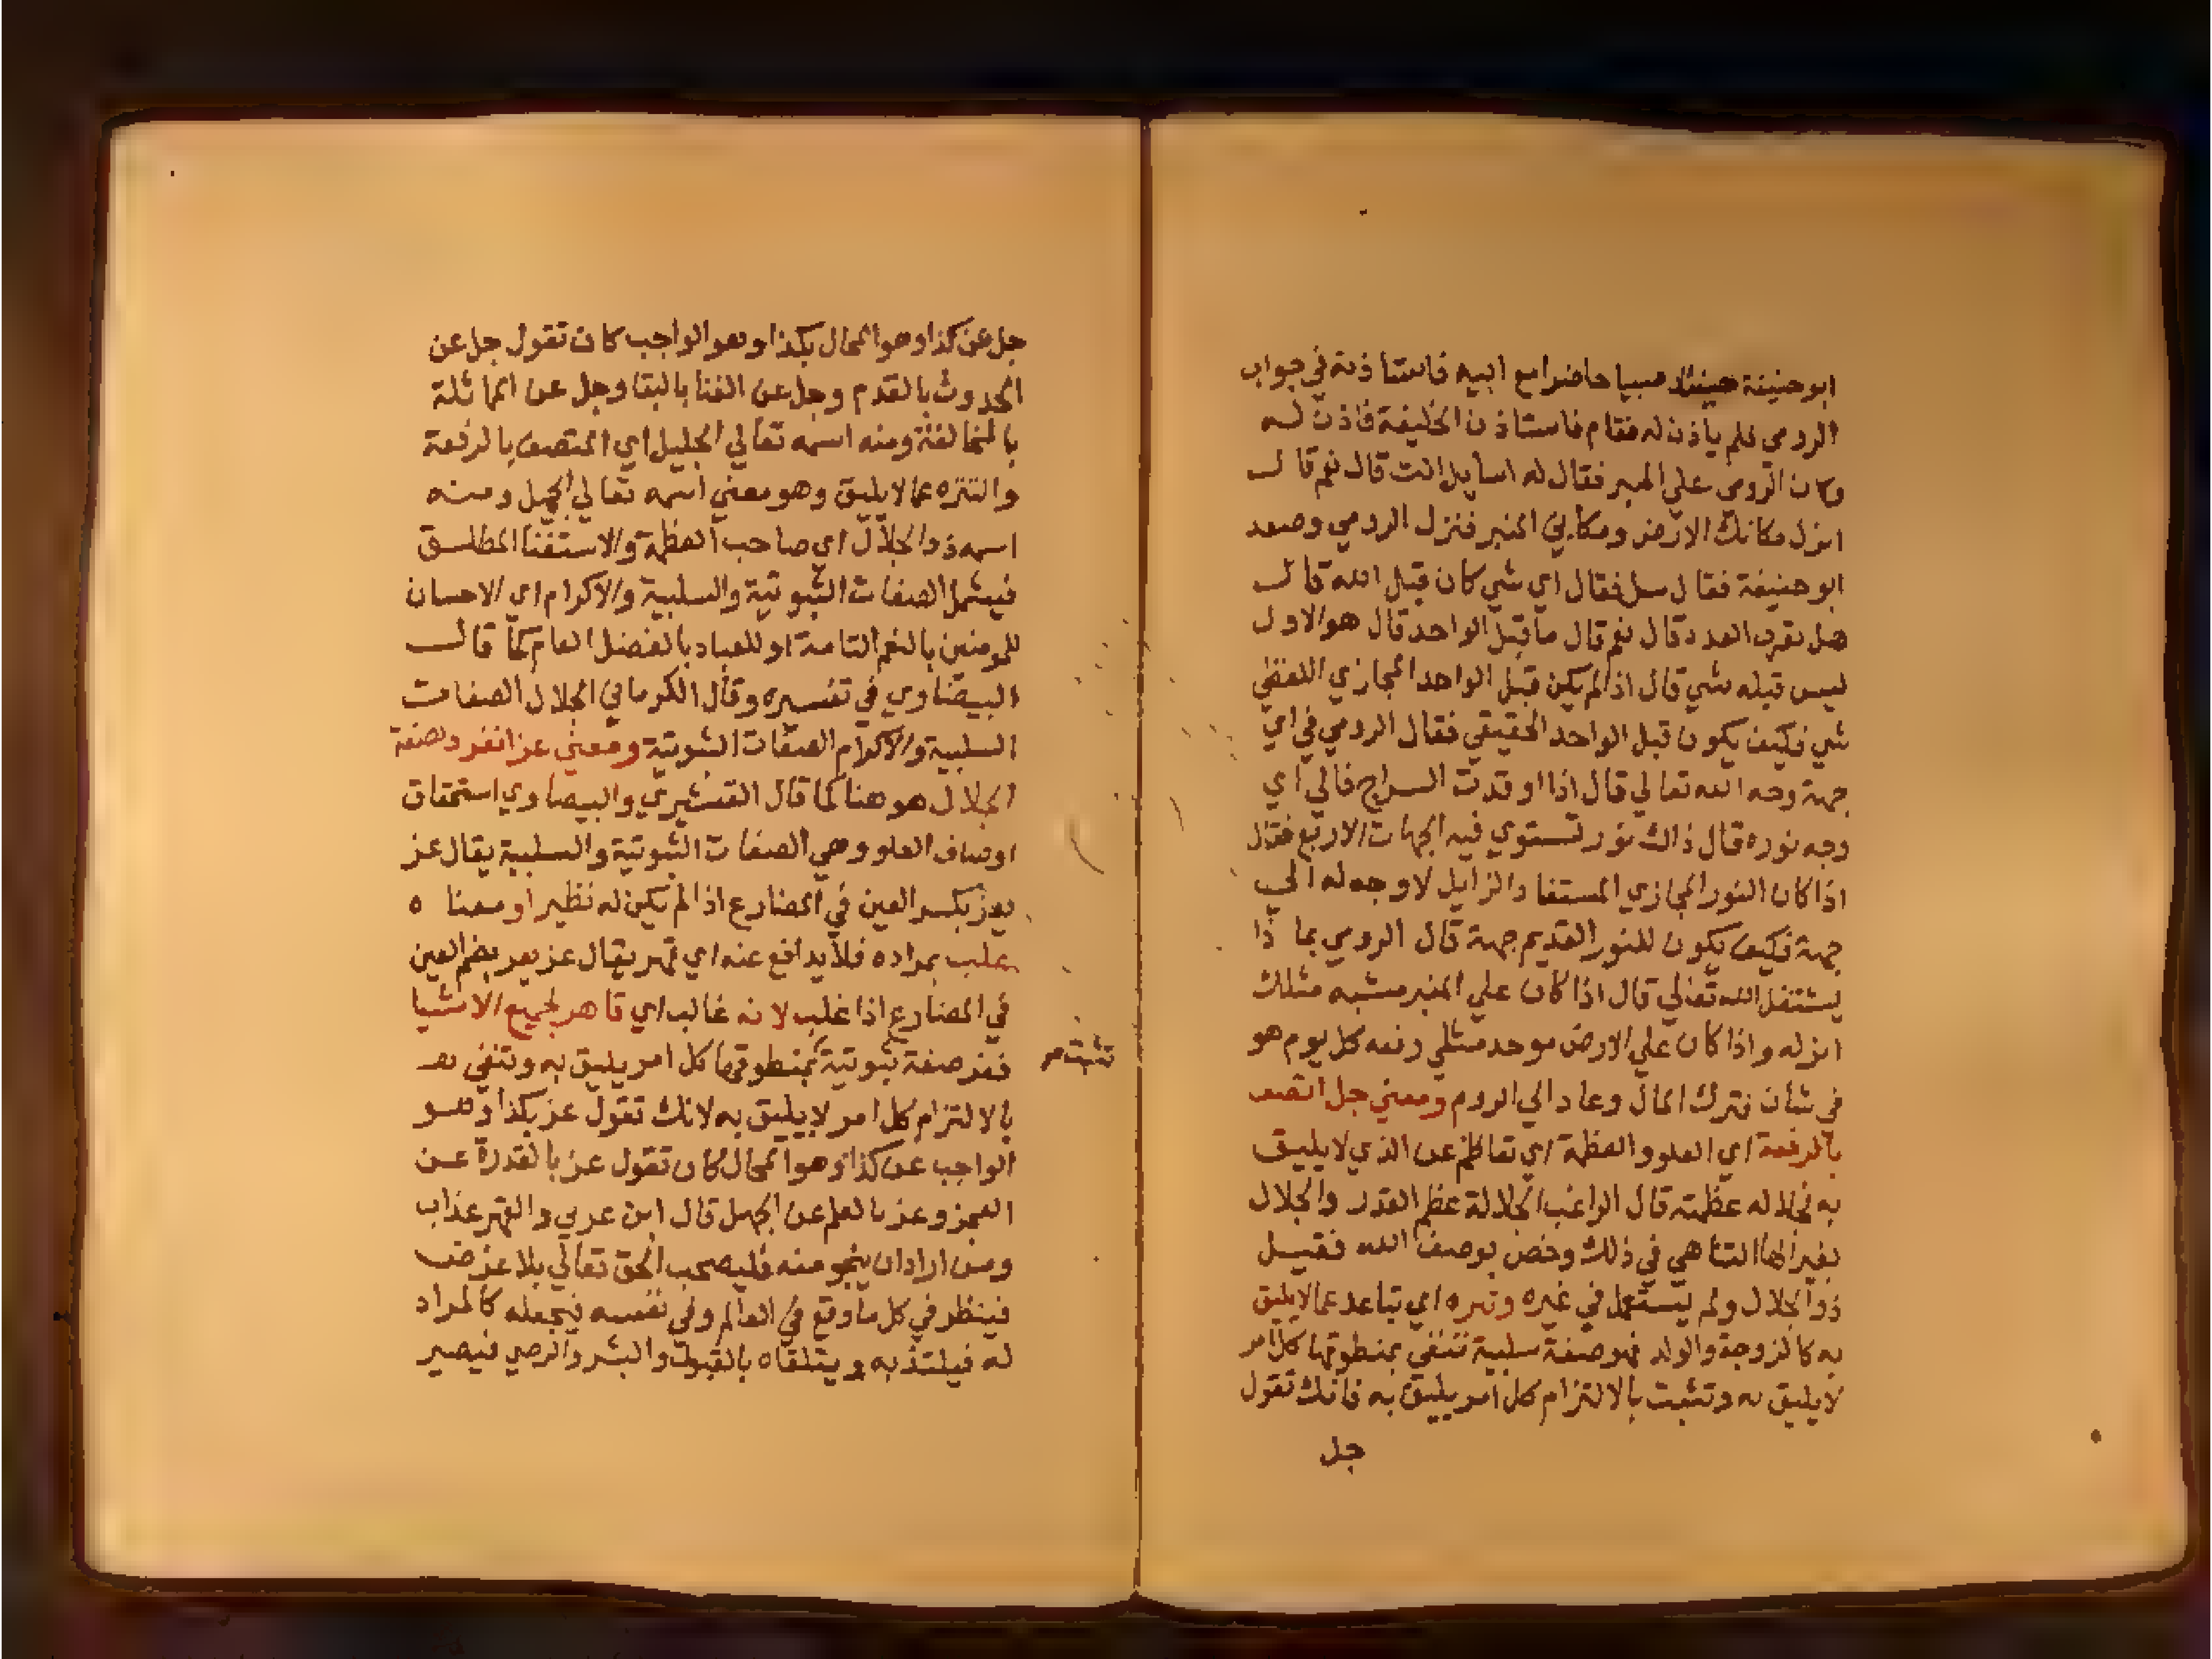 ابو حنيفة حينئذ صبيا حاضرا مع ابيه فاستاذنه في جواب
الرومي فلم ياذن له فقام فاستاذن الخليفة فاذن له
وكان الرومي علي المنبر فقال له اسايل انت قال نعم قال
انزل مكانك الارض ومكاني المنبر فنزل الرومي وصعد
ابو حنيفة فقال سل فقال اي شي كان قبل الله قال
هل تعرف العدد قال نعم قال ما قبل الواحد قال هو الاول
ليس قبله شي قال اذا لم يكن قبل الواحد المجازي اللفظي
شي فكيف يكون قبل الواحد الحقيقي فقال الرومي في اي
جهة وجه الله تعالي قال اذا اوقدت السراج فالي اي
وجه نوره قال ذاك نور تستوي فيه الجهات الاربع فقال
اذا كان النور المجازي المستفاد الزايل لا وجه له الي
جهة فكيف يكون للنور القديم جهة قال الرومي بما ذا
يشتغل الله تعالي قال اذا كان علي المنبر مشبه مثلك
انزله واذا كان علي الارض موحد مثلي رفعه كل يوم هو
في شان فترك المال وعاد الي الروم ومعني جل اتصف
بالرفعة اي العلو والعظمة اي تعاظم عن الذي لا يليق
به فجلاله عظمته قال الراغب الجلالة عظم القدر والجلال
بغير الهاء التناهي في ذلك وخص بوصف الله فقيل
ذو الجلال ولم يستعمل في غيره وتنزه اي تباعد عما لا يليق
به كالزوجة والولد فهو صفة سلبية تنفي بمنطوقها كل امر
لا يليق به وتثبت بالالتزام كل امر يليق به فانك تقول
جل
جل عن كذا وهو المحال بكذا وهو الواجب كان تقول جل عن
الحدوث بالقدم وجل عن الفنا بالبقا وجل عن المماثلة
بالمخالفة ومنه اسمه تعالي الجليل اي المتصف بالرفعة
والتنزه عما لا يليق وهو معني اسمه تعالي الجميل ومنه
اسمه ذو الجلال اي صاحب العظمة والاستغنا المطلق
فيشمل الصفات الثبوتية والسلبية والاكرام اي الاحسان
للمومنين بالنعم التامة او للعباد بالفضل العام كما قال
البيضاوي في تفسيره وقال الكرماني الجلال الصفات
السلبية والاكرام الصفات الثبوتية ومعني عز انفرد بصفة
الجلال هو هنا كما قال القشيري والبيضاوي استحقاق
اوصاف العلو وهي الصفات الثبوتية والسلبية يقال عز
يعز بكسر العين في المضارع اذا لم يكن له نظير او معناه
غلب بمراده فلا يدافع عنه اي قهر يقال عز يعز بضم العين
في المضارع اذا غلب لانه غالب اي قاهر لجميع الاشيا
فعز صفة ثبوتية بمنطوقها كل امر يليق به وتنفي
تثبت صح
بالالتزام كل امر لا يليق به لانك تقول عز بكذا وهو
الواجب عن كذا وهو المحال كان تقول عز بالقدرة عن
العجز وعز بالعلم عن الجهل قال ابن عربي والقهر عذاب
ومن اراد ان ينجو منه فليصحب الحق تعالي بلا غرض
فينظر في كل ما وقع في العالم وفي نفسه فيجعله كالمراد
له فيلتذ به ويتلقاه بالقبول والبشر والرضي فيصير